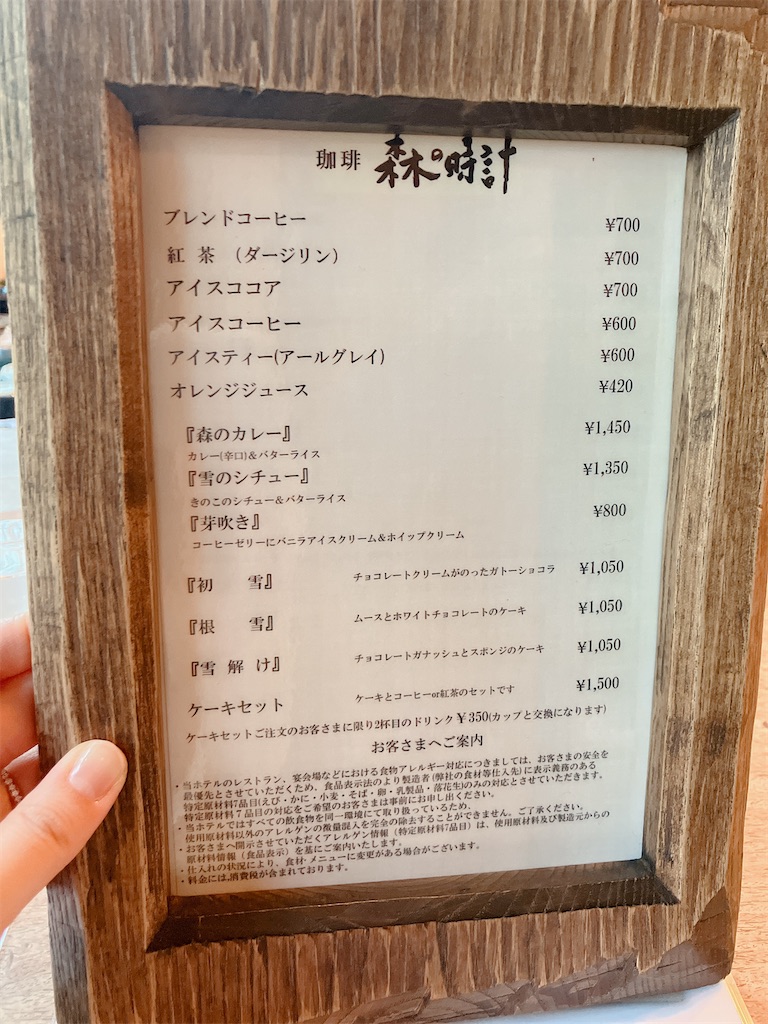 珈琲 森の時計
ブレンドコーヒー ¥700
紅 茶 （ダージリン） ¥700
アイスココア ¥700
アイスコーヒー ¥600
アイスティー(アールグレイ) ¥600
オレンジジュース ¥420
『森のカレー』 ¥1,450
カレー(辛口)＆バターライス
『雪のシチュー』 ¥1,350
きのこのシチュー＆バターライス
『芽吹き』 ¥800
コーヒーゼリーにバニラアイスクリーム＆ホイップクリーム
『初 雪』 チョコレートクリームがのったガトーショコラ ¥1,050
『根 雪』 ムースとホワイトチョコレートのケーキ ¥1,050
『雪 解 け』 チョコレートガナッシュとスポンジのケーキ ¥1,050
ケーキセット ケーキとコーヒーor紅茶のセットです ¥1,500
ケーキセットご注文のお客さまに限り2杯目のドリンク￥350(カップと交換になります)
お客さまへご案内
・当ホテルのレストラン、宴会場などにおける食物アレルギー対応につきましては、お客さまの安全を
最優先とさせていただくため、食品表示法のより製造者(弊社の食材等仕入先)に表示義務のある
特定原材料7品目(えび・かに・小麦・そば・卵・乳製品・落花生)のみの対応とさせていただきます。
特定原材料７品目の対応をご希望のお客さまは事前にお申し出ください。
・当ホテルではすべての飲食物を同一環境にて取り扱っているため、
使用原材料以外のアレルゲンの微量混入を完全の除去することができません。ご了承ください。
・お客さまへ開示させていただくアレルゲン情報（特定原材料7品目）は、使用原材料及び製造元からの
原材料情報（食品表示）を基にご案内いたします。
・仕入れの状況により、食材･メニューに変更がある場合がございます。
・料金には､消費税が含まれております。